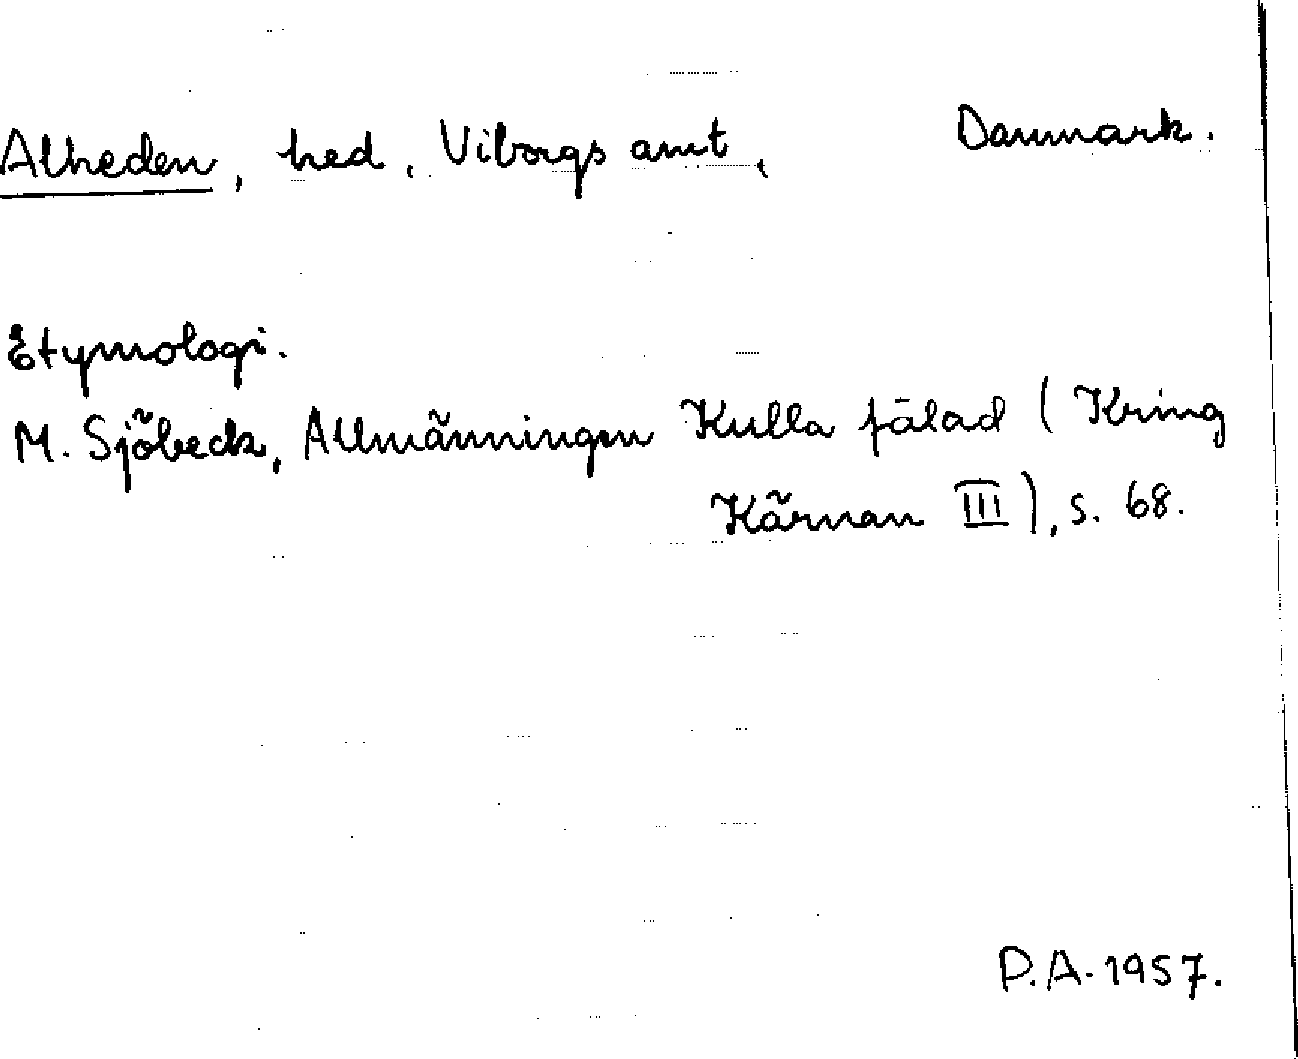 Alheden, hed, Viborgs amt, Danmark.
Etymologi.
M. Sjöbeck, Allmänningen Kulla fälad (Kring
Kärnan III), s. 68.
P.A. 1957.